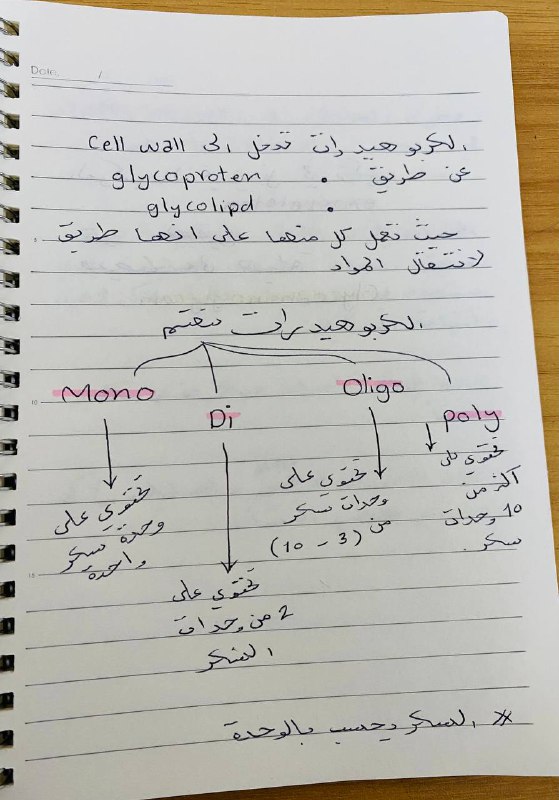 Date: /
الكربوهيدرات تدخل الى cell wall
عن طريق • glycoproten
• glycolipd
حيث تعمل كل منها على انها طريق
لانتقال المواد
الكربوهيدرات تنقسم
Mono
Di
Oligo
poly
تحتوي على
وحدة سكر
واحدة
تحتوي على
2 من وحدات
السكر
تحتوي على
وحدات سكر
من (3 - 10)
تحتوي على
أكثر من
10 وحدات
سكر.
* السكر يحسب بالوحدة